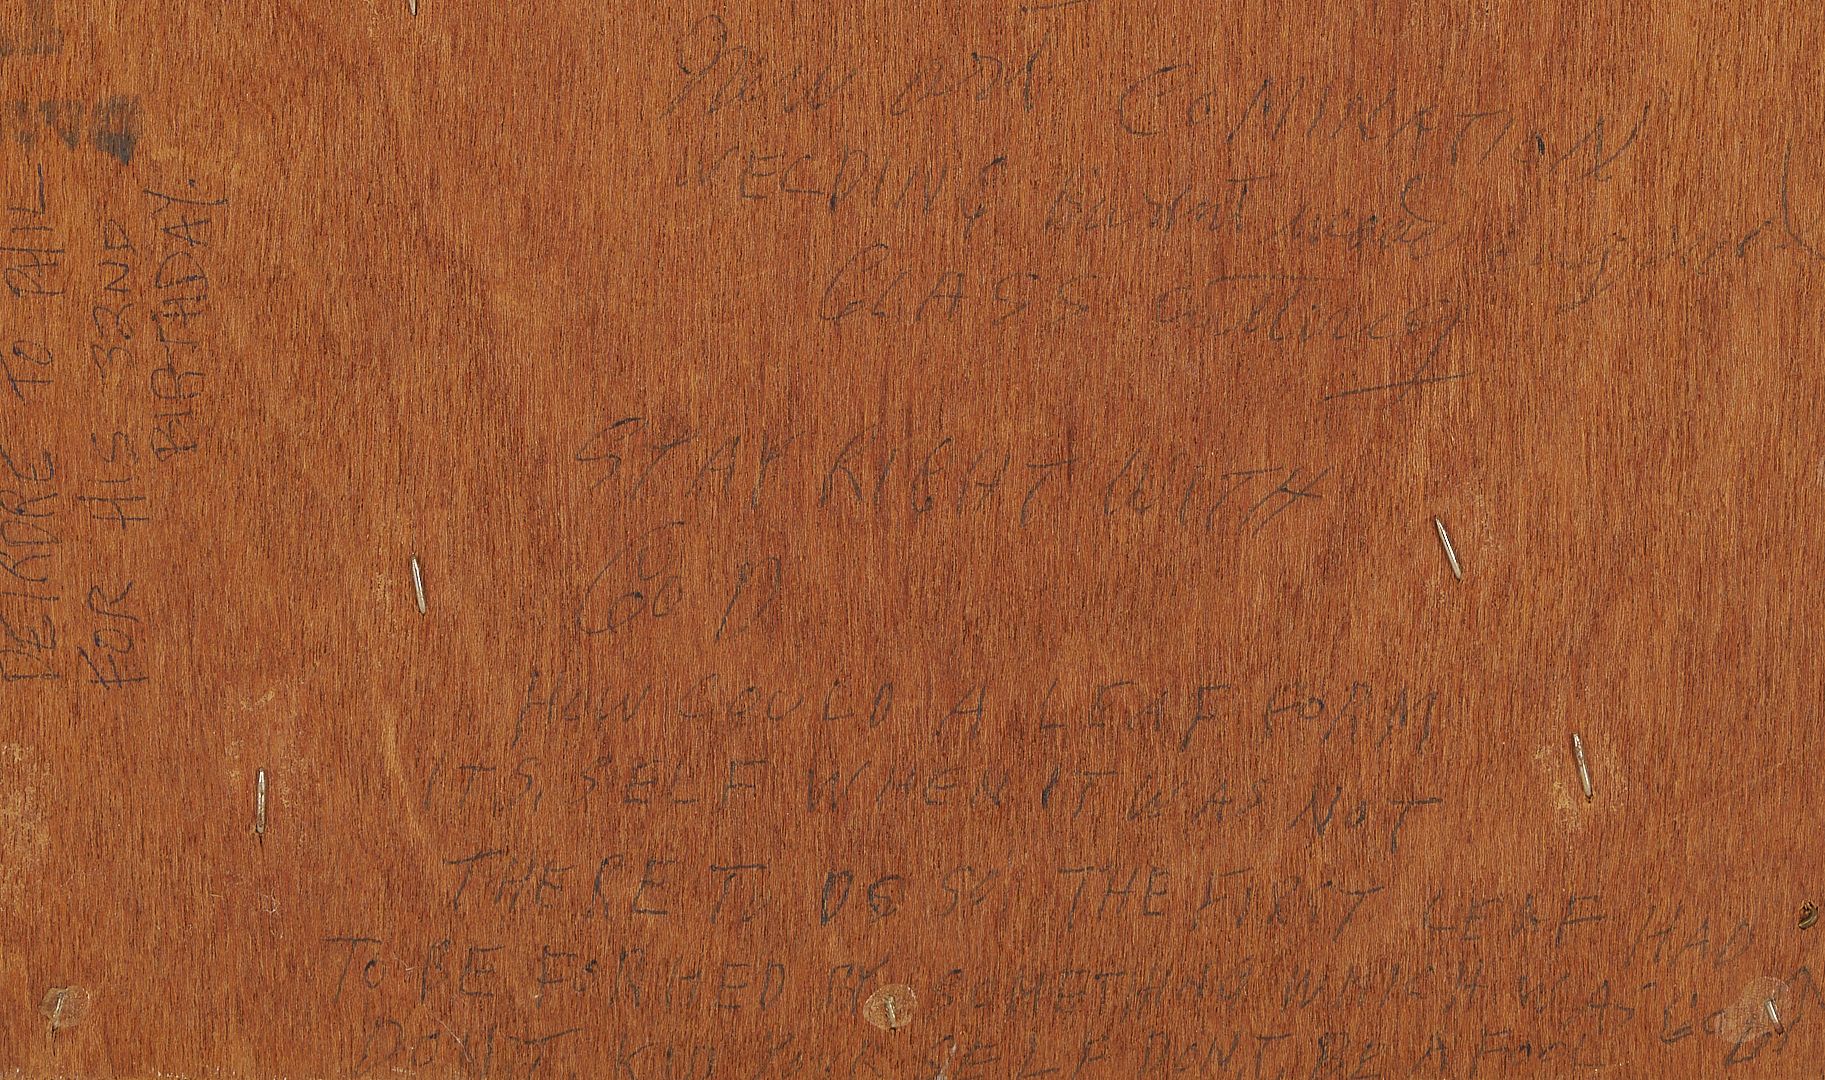 New art COMINATION
WELDING burnt wood
GLASS cutting
STAY RIGHT WITH
GOD
HOW COULD A LEAF FORM
ITS SELF WHEN IT WAS NOT
THERE TO DO SO THE FIRST LEAF HAD
TO BE FORMED BY SOMETHING WHICH WAS GOD
DON'T KID YOUR SELF DONT BE A FOOL
DEIRDRE TO PHIL
FOR HIS 33ND
BIRTHDAY.